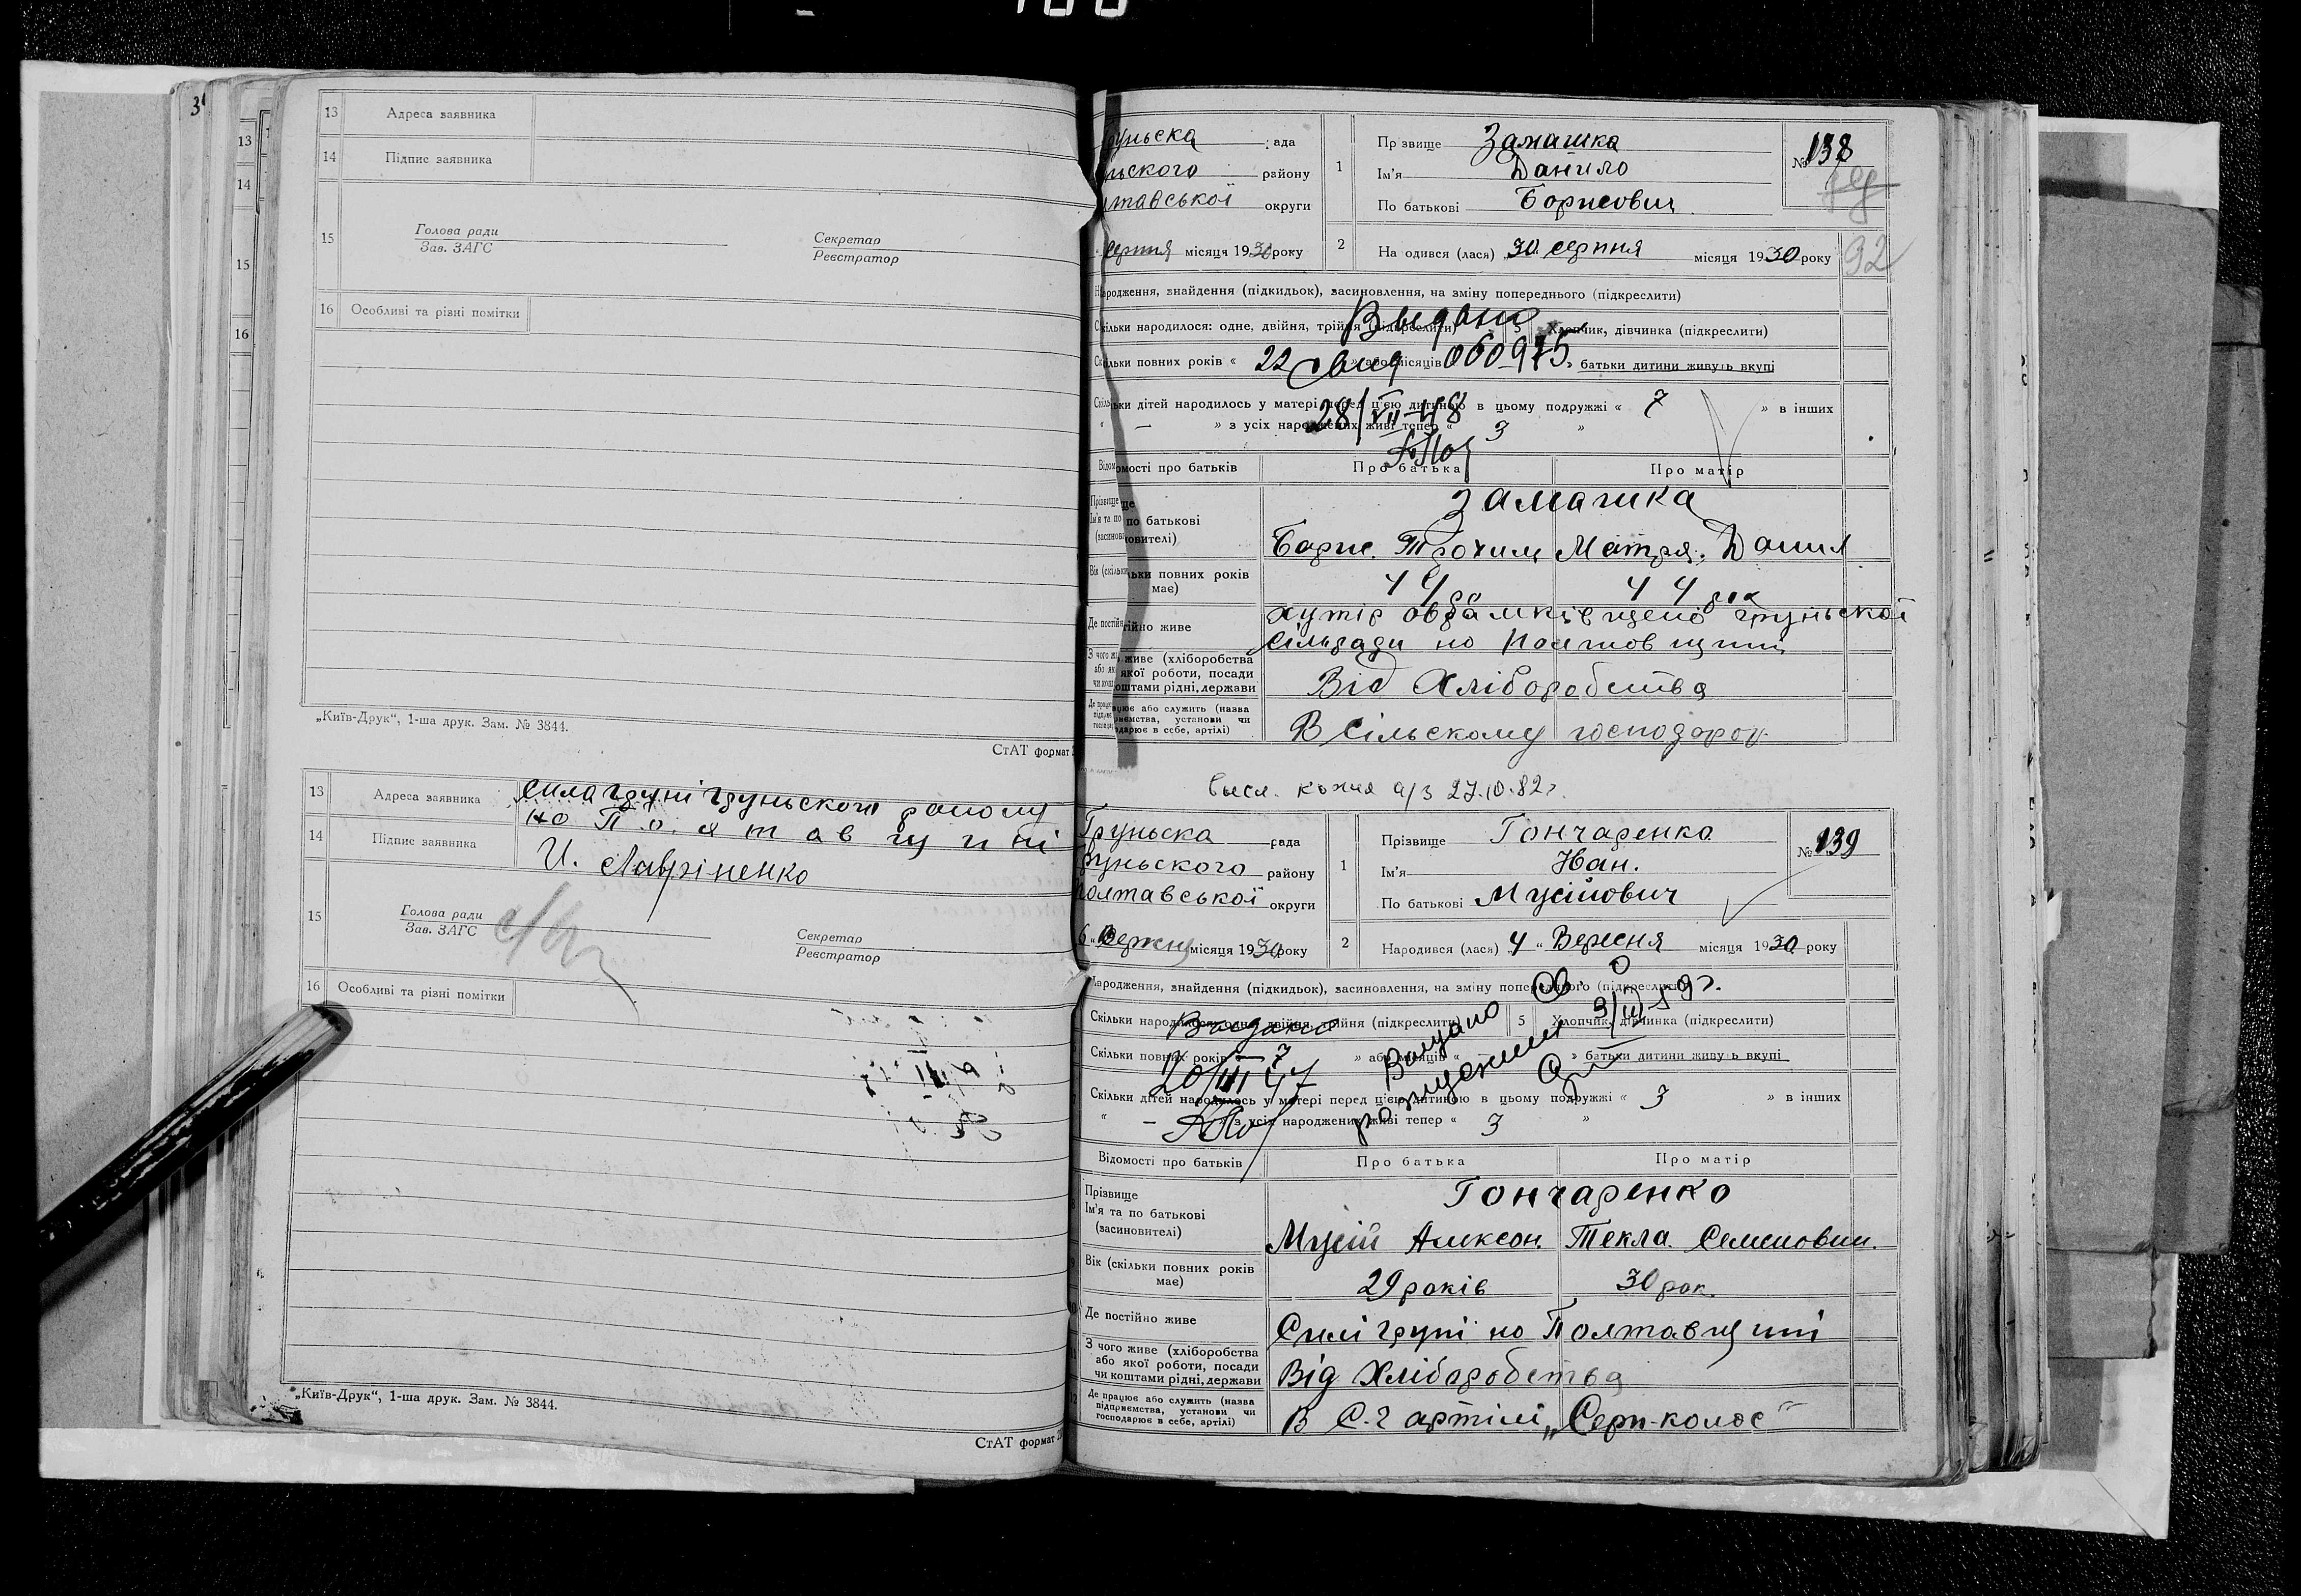 100
3
13
14
15
16
13 Адреса заявника
14 Підпис заявника
15 Голова ради
Зав. ЗАГС
Секретар
Реєстратор
16 Особливі та різні помітки
„Київ-Друк“, 1-ша друк. Зам. № 3844.
СтАТ формат
13 Адреса заявника села груні груньского району
на Полтавщині
14 Підпис заявника И. Лавріненко
15 Голова ради
Зав. ЗАГС
Секретар
Реєстратор
16 Особливі та різні помітки
„Київ-Друк“, 1-ша друк. Зам. № 3844.
СтАТ формат
руньска рада
ньского району
лтавської округи
серпня місяця 1930 року
1 Прізвище Замашка
Ім'я Данило
По батькові Борисович
№ 138
2 Народився (лася) „30 серпня місяця 1930 року
92
Народження, знайдення (підкидьок), засиновлення, на зміну попереднього (підкреслити)
Скільки народилося: одне, двійня, трійня (підкреслити) 5 Хлопчик, дівчинка (підкреслити)
Выдано
Скільки повних років « » або місяців « » батьки дитини живуть вкупі
22 060975
Скільки дітей народилось у матері перед цією дитиною в цьому подружжі « 7 » в інших
28/VII-48
« — » з усіх народжених живі тепер « 3 »
Відомості про батьків Про батька Про матір
Прізвище
Ім'я та по батькові
(засиновителі)
Замашка
Борис Трохим Мотря Данил
Вік (скільки повних років
має)
44 44
Де постійно живе хутір груньскої
сільради на Полтавщині
З чого живе (хліборобства
або якої роботи, посади
чи коштами рідні, держави
Від Хліборобства
Де працює або служить (назва
підприємства, установи чи
господарює в себе, артілі)
В сільському господар
высл. копия а/з 27.10.82г.
Груньска рада
Груньского району
Полтавської округи
6 „ Вересня місяця 1930 року
1 Прізвище Гончаренко
Ім'я Иван.
По батькові Мусійович
№ 139
2 Народився (лася) 4 „ Вересня місяця 1930 року
Народження, знайдення (підкидьок), засиновлення, на зміну попереднього (підкреслити)
Скільки народилося: одне, двійня, трійня (підкреслити) 5 Хлопчик, дівчинка (підкреслити)
Выдано
Скільки повних років « » або місяців « » батьки дитини живуть вкупі
20/III 47
Скільки дітей народилось у матері перед цією дитиною в цьому подружжі « 3 » в інших
« — » з усіх народжених живі тепер « 3 »
Відомості про батьків Про батька Про матір
Прізвище
Ім'я та по батькові
(засиновителі)
Гончаренко
Мусій Алексан. Текла. Семеновни.
Вік (скільки повних років
має)
29 років 30 рок.
Де постійно живе Силі груні на Полтавщині
З чого живе (хліборобства
або якої роботи, посади
чи коштами рідні, держави
Від Хліборобства
Де працює або служить (назва
підприємства, установи чи
господарює в себе, артілі)
В С-г артілі „Серп-колос“